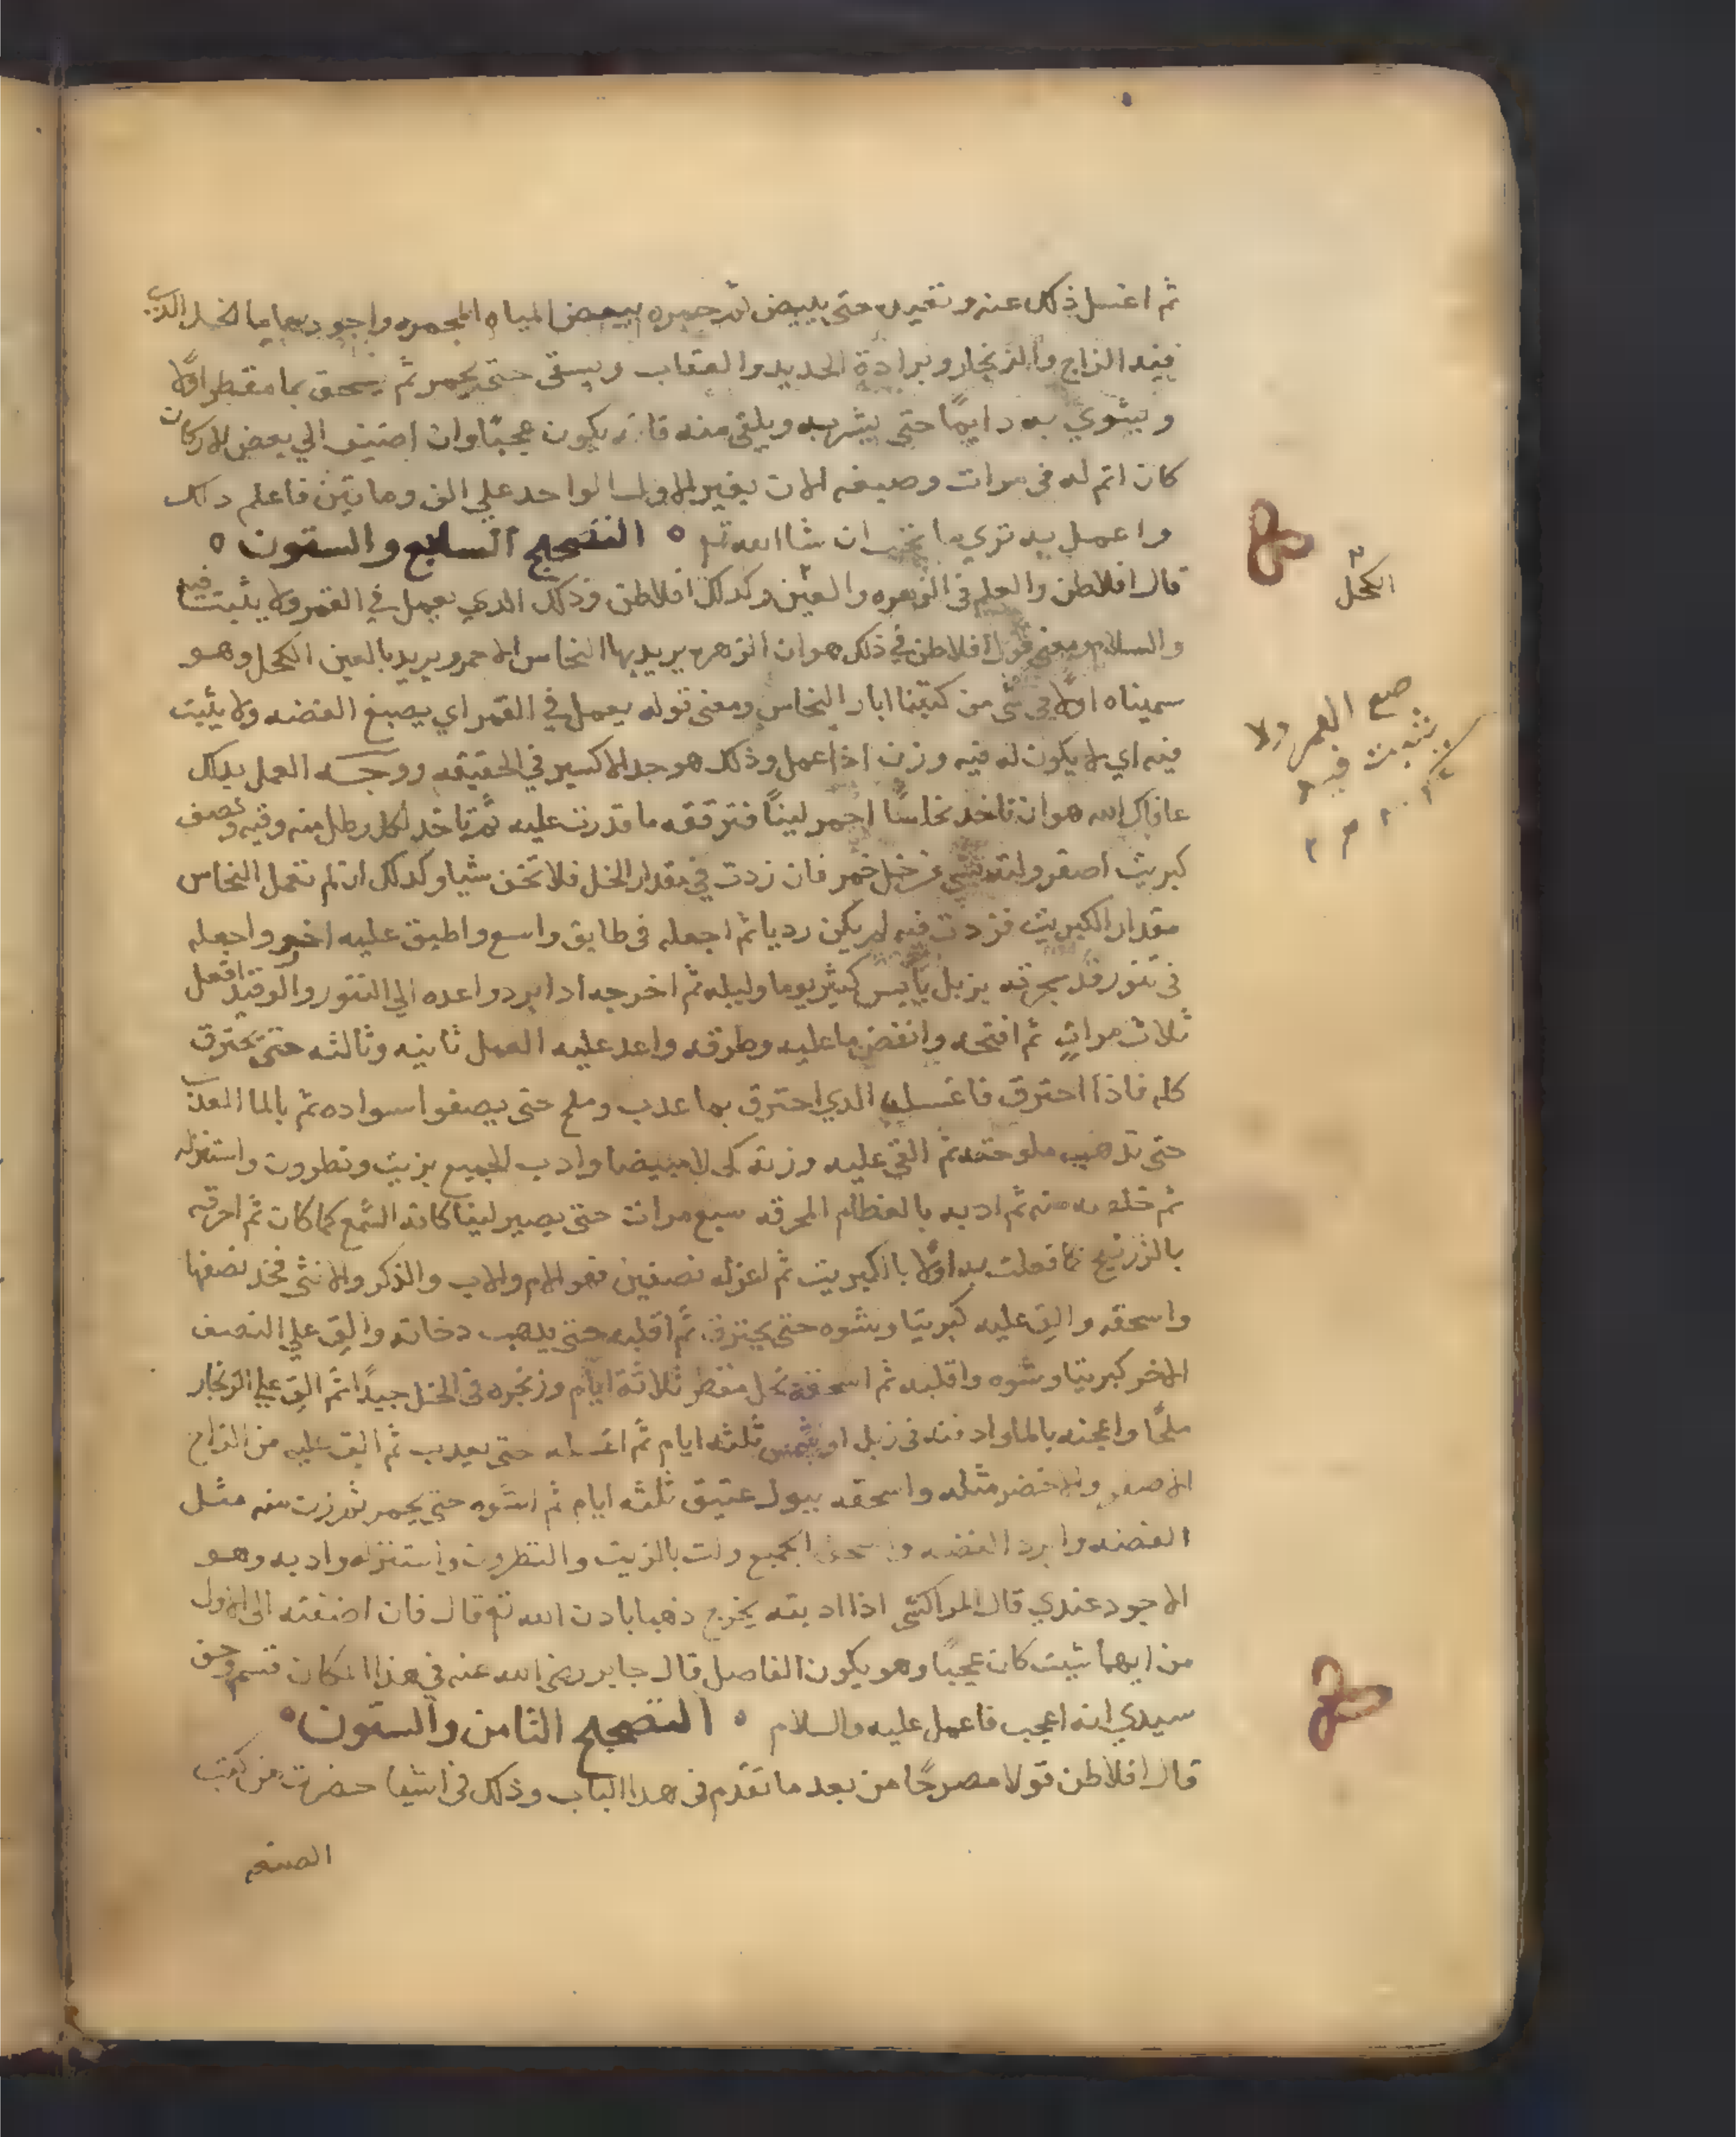 ثم اغسل ذلك عنه وتغيره حتى يبيض ثم حمره ببعض المياه المحمره واجودها ما الخل الذي
فيه الزاج والزنجار وبرادة الحديد والعقاب ويسقى حتى يحمر ثم يسحق بما مقطر اولا
ويشوي به دايمًا حتى يشربه ويلقى منه فانه يكون عجبًا وان اضيف الي بعض الاركان
كان اتم له في مرات وصبغه الان بغير الاول الواحد علي الف وماتين فاعلم دلك
واعمل به تري ما تحب ان شاالله تع ٥ التصحيح السابع والستون ٥
قال افلاطن والعلم في الزهره والعين وكدلك افلاطن وذلك الدي يعمل في القمر ولا يثبت فيه
والسلام ومعنى قول افلاطن في ذلك هو ان الزهره يريد بها النحاس الاحمر ويريد بالعين الكحل وهو
سميناه اولا في شي من كتبنا ابار النحاس ومعنى قوله يعمل في القمر اي يصبغ الفضه ولا يثبت
فيه اي لا يكون له فيه وزن اذا عمل وذلك هو حد الاكسير في الحقيقه ووجه العمل بدلك
عافاك الله هو ان تاخد نحاسًا احمر لينًا فترققه ما قدرت عليه ثم تاخد لكل رطل منه وقيه ونصف
كبريت اصفر ولته بشي من خل خمر فان زدت في مقدار الخل فلا تخف شيا وكدلك ان لم تعمل النحاس
مقدار الكبريت فزدت فيه لم يكن رديا ثم اجعله في طابق واسع واطبق عليه اخر واجعله
في تنور قد سجرته بزبل يابس كثير يوما وليله ثم اخرجه ادا برد واعده الي التنور والوقيد افعل
ثلاث مراتٍ ثم افتحه وانفض ما عليه وطرقه واعد عليه العمل ثانيه وثالثه حتى يحترق
كله فاذا احترق فاغسل الدي احترق بما عدب وملح حتى يصفو اسواده ثم بالما العذب
حتى تذهب ملوحته ثم القي عليه وزنه كحلا مبيضا وادب الجميع بزيت ونطرون واستنزله
ثم خلصه منه ثم ادبه بالعظام المحرقه سبع مرات حتى يصير لينا كانه الشمع كما كان ثم احرقه
بالزرنيخ كما فعلت به اولا بالكبريت ثم اعزله نصفين فهو الام والاب والذكر والانثى فخد نصفها
واسحقه والق عليه كبريتا وشوه حتى يحترق ثم اقلبه حتى يدهب دخانه والق علي النصف
الاخر كبريتا وشوه واقلبه ثم اسحقه بخل مقطر ثلاثة ايام وزنجره في الخل جيدًا ثم الق علي الزنجار
ملحًا واعجنه بالما وادفنه في زبل او شمس ثلثه ايام ثم اغسله حتى يعدب ثم الق عليه من الزاج
الاصفر والاخضر مثله واسحقه ببول عتيق ثلثه ايام ثم اشوه حتى يحمر ثم زن منه مثل
الفضه وابرد الفضه واسحق الجميع ولت بالزيت والنطرون واستنزله وادبه وهو
الاجود عندي قال المراكشي اذا ادبته يخرج ذهبا بادن الله تع قال فان اضفته الى الاول
من ايهما شيت كان عجيبًا وهو يكون الفاصل قال جابر رضى الله عنه في هذا المكان قسم وحق
سيدي انه اعجب فاعمل عليه والسلام ٥ التصحيح الثامن والستون ٥
قال افلاطن قولا مصرحًا من بعد ما تقدم في هدا الباب وذلك في اشيا حضرت من كتب
الصنعه
الكحل
صبغ القمر ولا
يثبت فيه